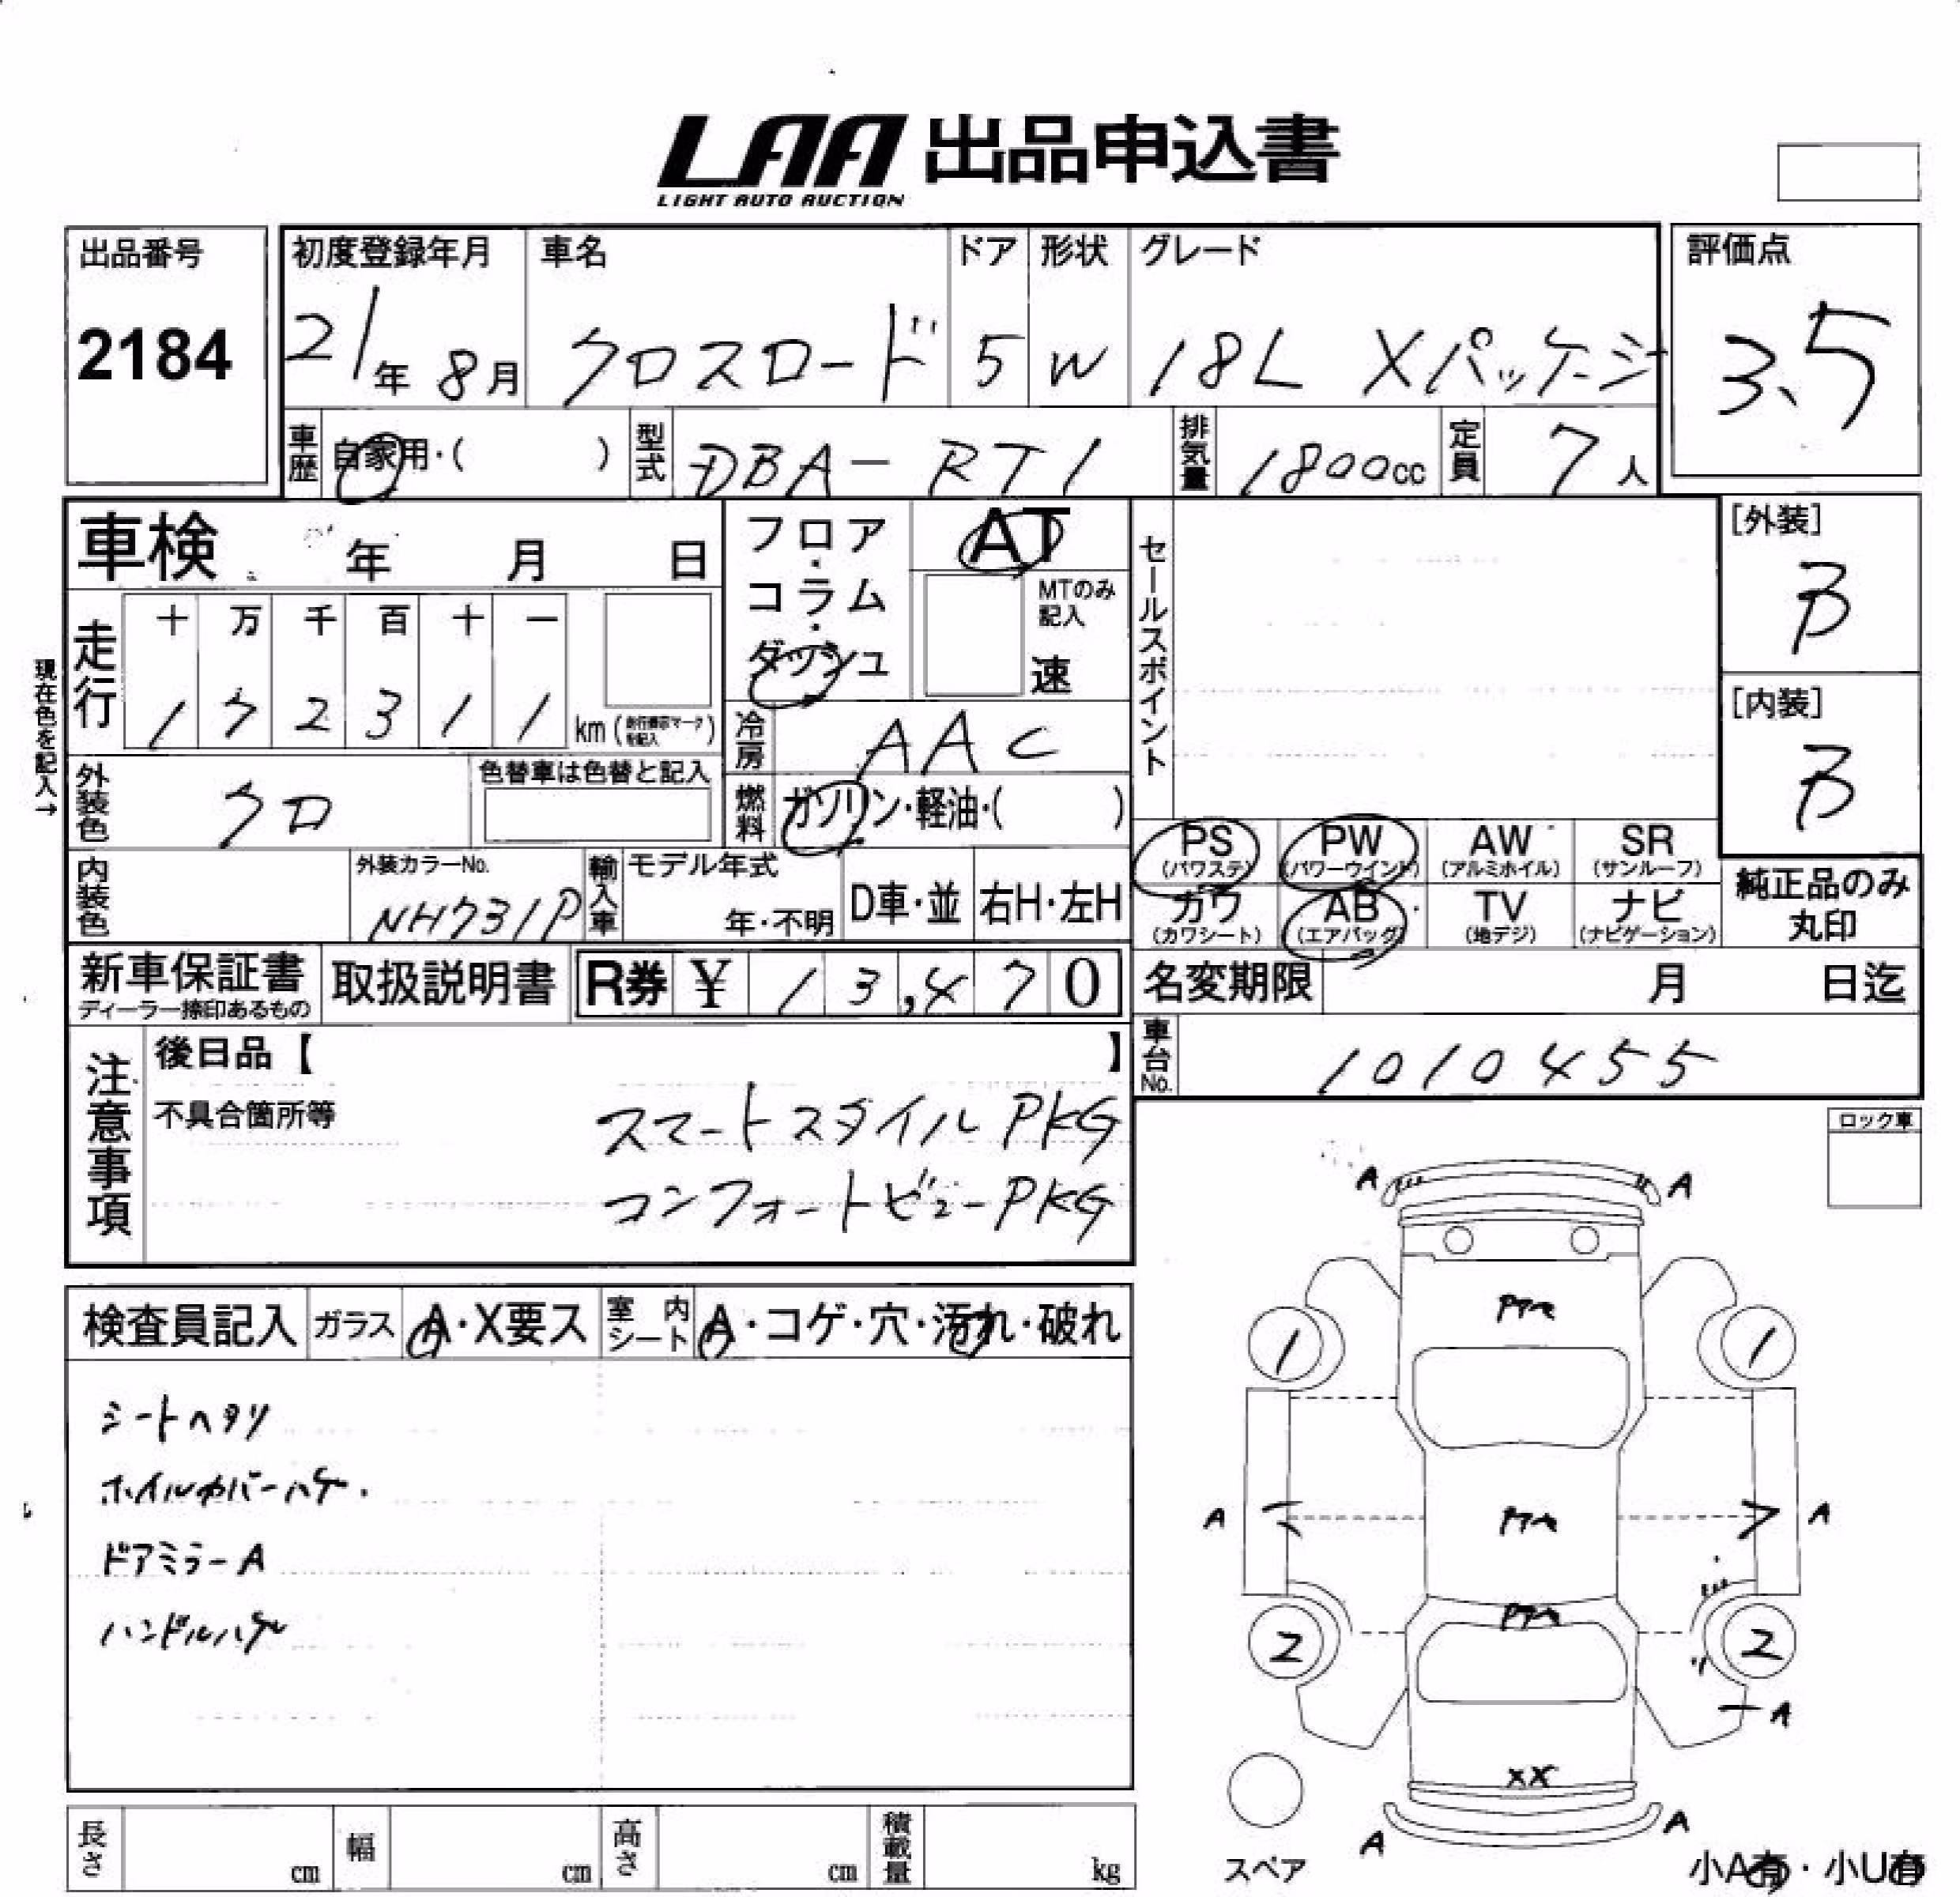 LAA 出品申込書
LIGHT AUTO AUCTION
出品番号
2184
初度登録年月
21年 8月
車名
クロスロード
ドア
5
形状
W
グレード
18L Xパッケージ
評価点
3.5
車歴 自家用・( )
型式 DBA-RT1
排気量 1800cc
定員 7人
車検 年 月 日
現在色を記入→
走行
十 万 千 百 十 一
1 7 2 3 1 1
km (走行表示マークを記入)
フロア・コラム・ダッシュ
AT
MTのみ記入
速
冷房 AAC
燃料 ガソリン・軽油・( )
セールスポイント
[外装]
B
[内装]
B
外装色 クロ
色替車は色替と記入
内装色
外装カラーNo.
NH731P
輸入車
モデル年式
年・不明
D車・並
右H・左H
PS (パワステ)
PW (パワーウインド)
AW (アルミホイル)
SR (サンルーフ)
カワ (カワシート)
AB (エアバッグ)
TV (地デジ)
ナビ (ナビゲーション)
純正品のみ
丸印
新車保証書
ディーラー捺印あるもの
取扱説明書
R券 ¥ 13,470
名変期限 月 日迄
車台No. 1010455
注意事項
後日品【 】
不具合箇所等
スマートスタイルPKG
コンフォートビューPKG
ロック車
検査員記入
ガラス A・X要ス
室内シート A・コゲ・穴・汚れ・破れ
シートヘタリ
ホイルカバーハゲ.
ドアミラーA
ハンドルハゲ
A A
1 1
A A
2 2
A
XX
A A
スペア
小A有・小U有
長さ cm
幅 cm
高さ cm
積載量 kg